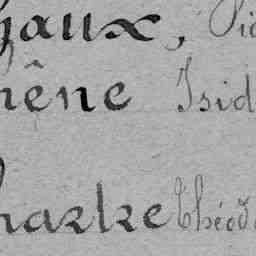 gaux, Pie
hêne Isid
harre Théod